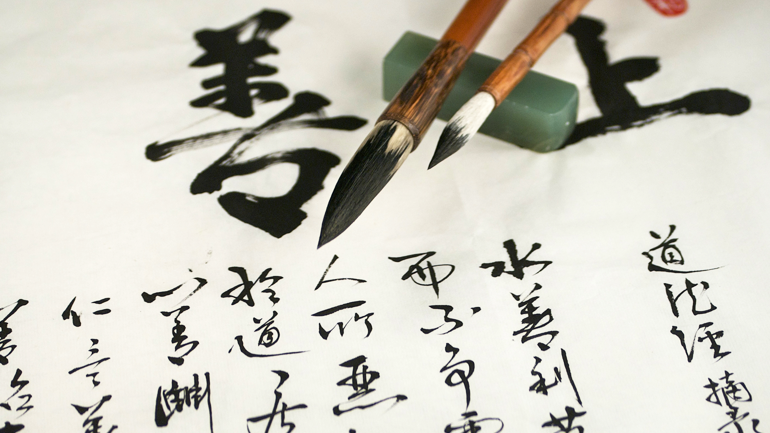 上善
道德經摘录
水善利
而不争
人所惡
於道居
心善淵
仁言善
善